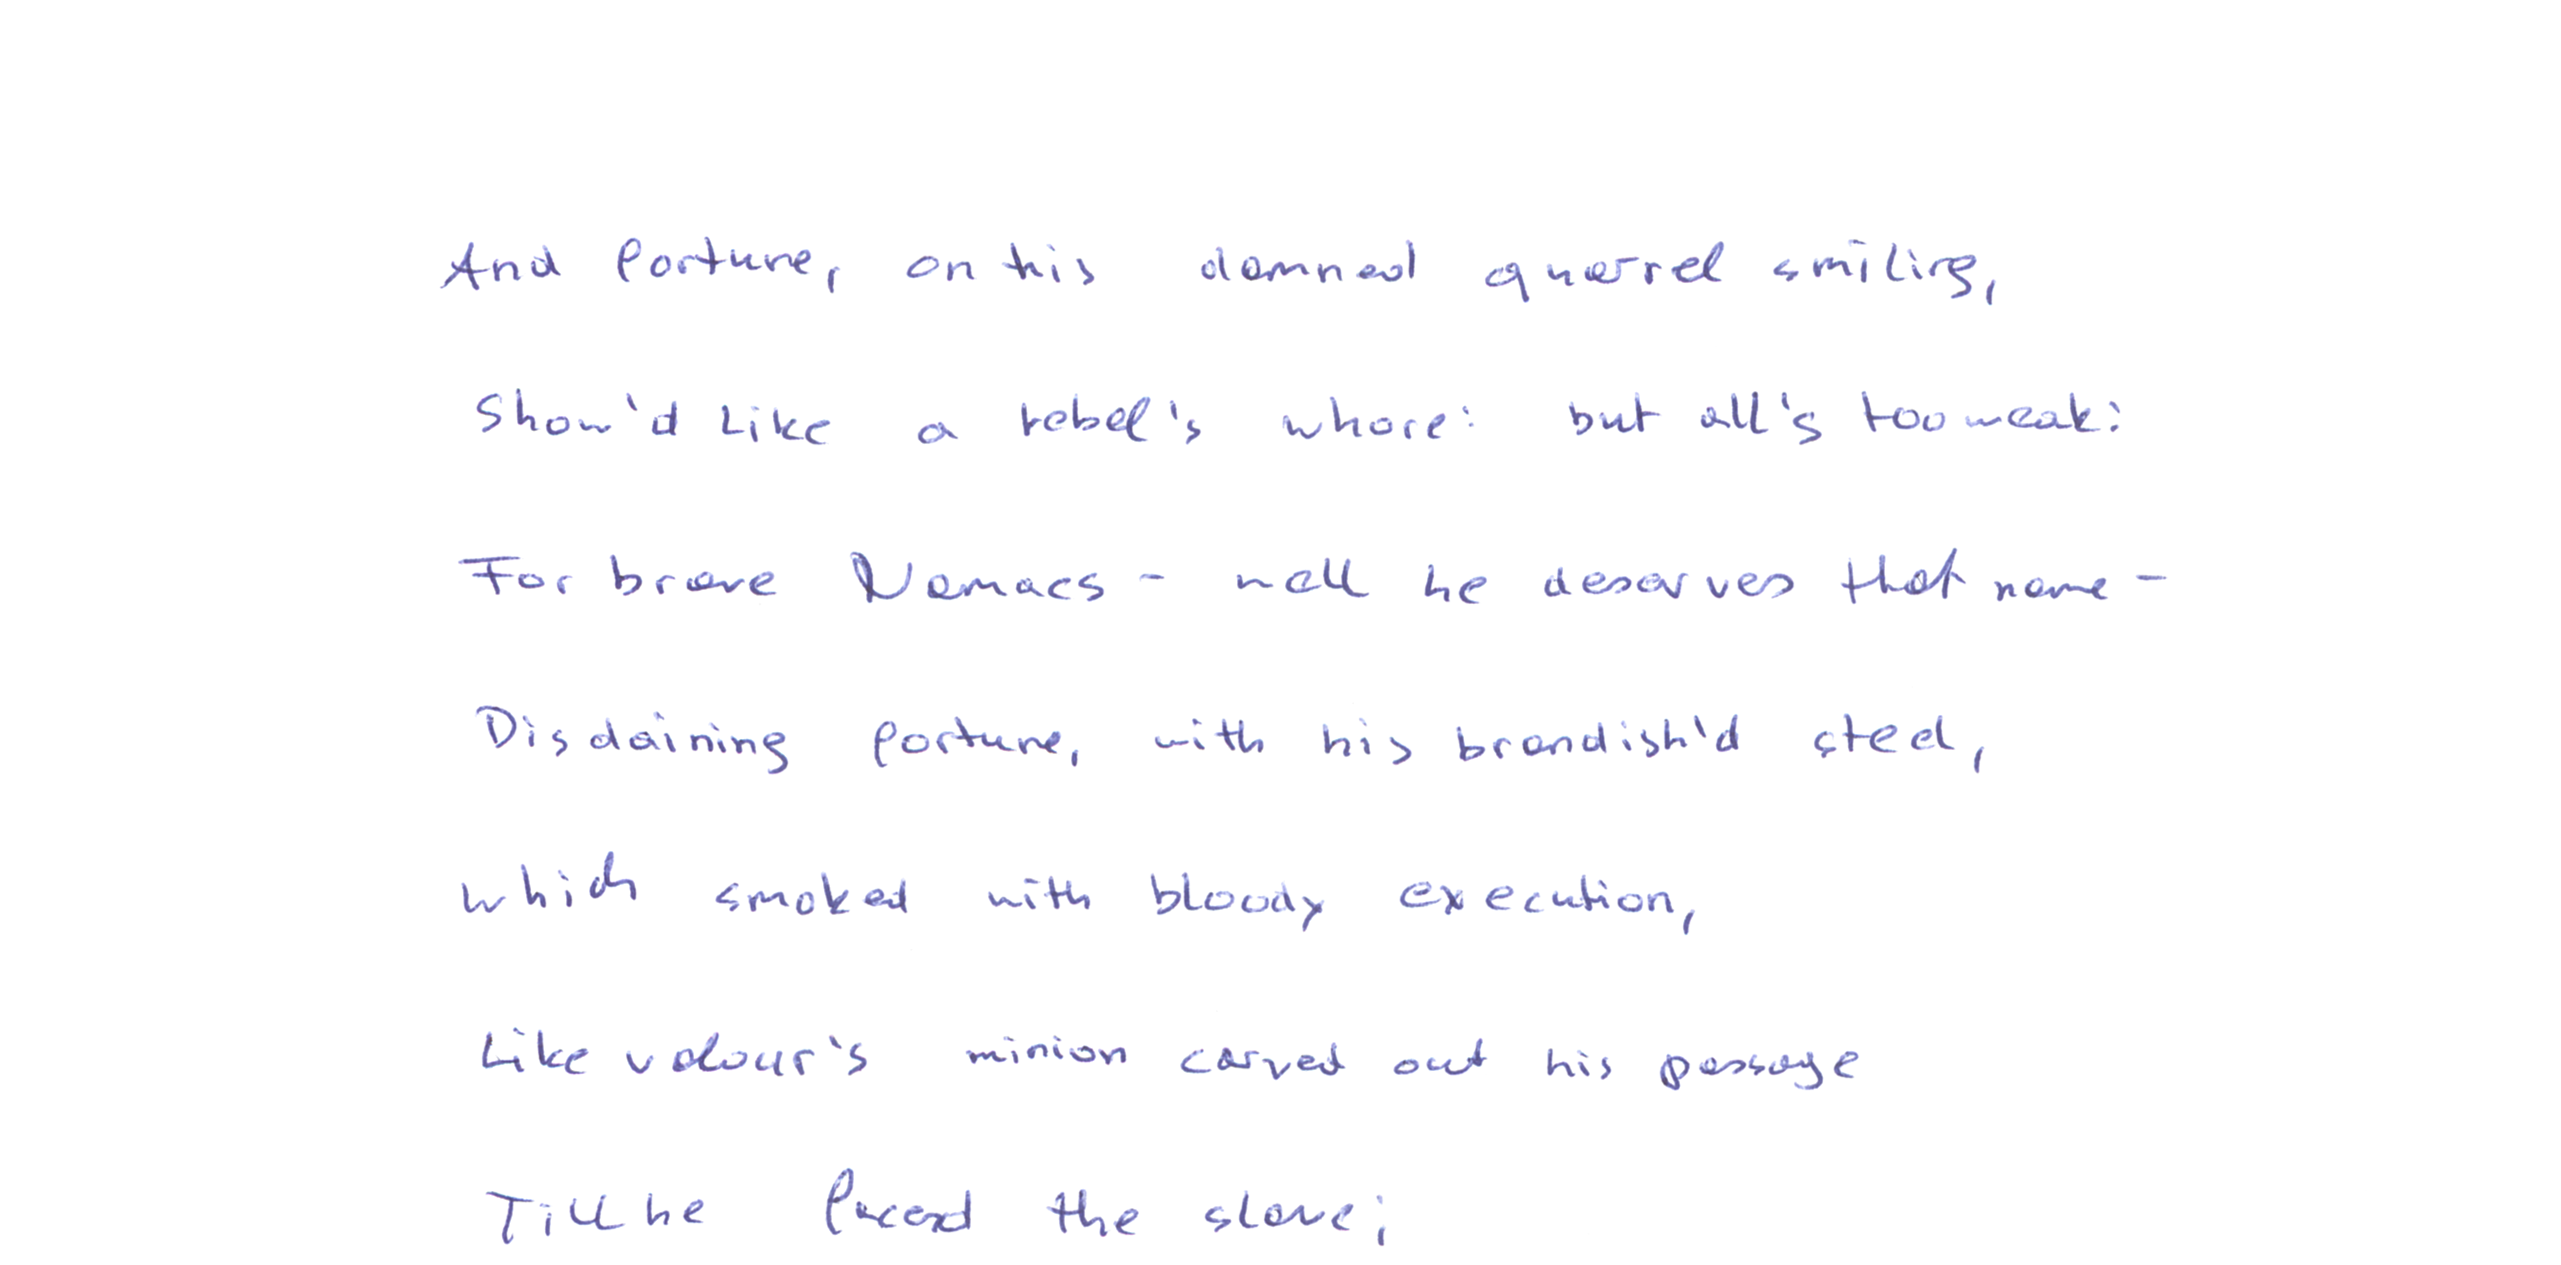 And fortune, on his damned quarrel smiling,
Show'd like a rebel's whore: but all's too weak:
For brave Nemacs - well he deserves that name -
Disdaining fortune, with his brandish'd steel,
which smoked with bloody execution,
Like valour's minion carved out his passage
Till he faced the slave;